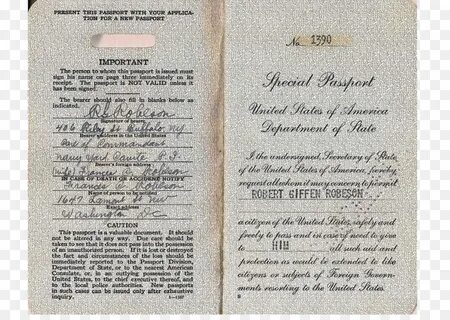 PRESENT THIS PASSPORT WITH YOUR APPLICA-
TION FOR A NEW PASSPORT
IMPORTANT
The person to whom this passport is issued must
sign his name on page three immediately on its
receipt. The passport is NOT VALID unless it
has been signed.
The bearer should also fill in blanks below as
indicated.
Robeson
Signature of bearer
406 Riley St Buffalo, NY
Bearer's address in the United States
Care of Commandant
Navy Yard Cavite P. I.
Bearer's foreign address
Frances Robeson
IN CASE OF DEATH OR ACCIDENT NOTIFY
Frances Robeson
Name of person to be notified
1647 Lamont St NW
Exact address
Washington DC
CAUTION
This passport is a valuable document. It should
not be altered in any way. Due care should be
taken to see that it does not pass into the possession
of an unauthorized person. If it is lost or destroyed
the fact and circumstances of the loss should be
immediately reported to the Passport Division,
Department of State, or to the nearest American
Consulate, or, in an outlying possession of the
United States, to the chief executive thereof, and
to the local police authorities. New passports
in such cases can be issued only after exhaustive
inquiry.
No. 1390
Special Passport
United States of America
Department of State
I, the undersigned, Secretary of State,
of the United States of America, hereby
request all whom it may concern to permit
ROBERT GIFFEN ROBESON,
a citizen of the United States, safely and
freely to pass and in case of need to give
to HIM all such aid and
protection as would be extended to like
citizens or subjects of Foreign Govern-
ments resorting to the United States.